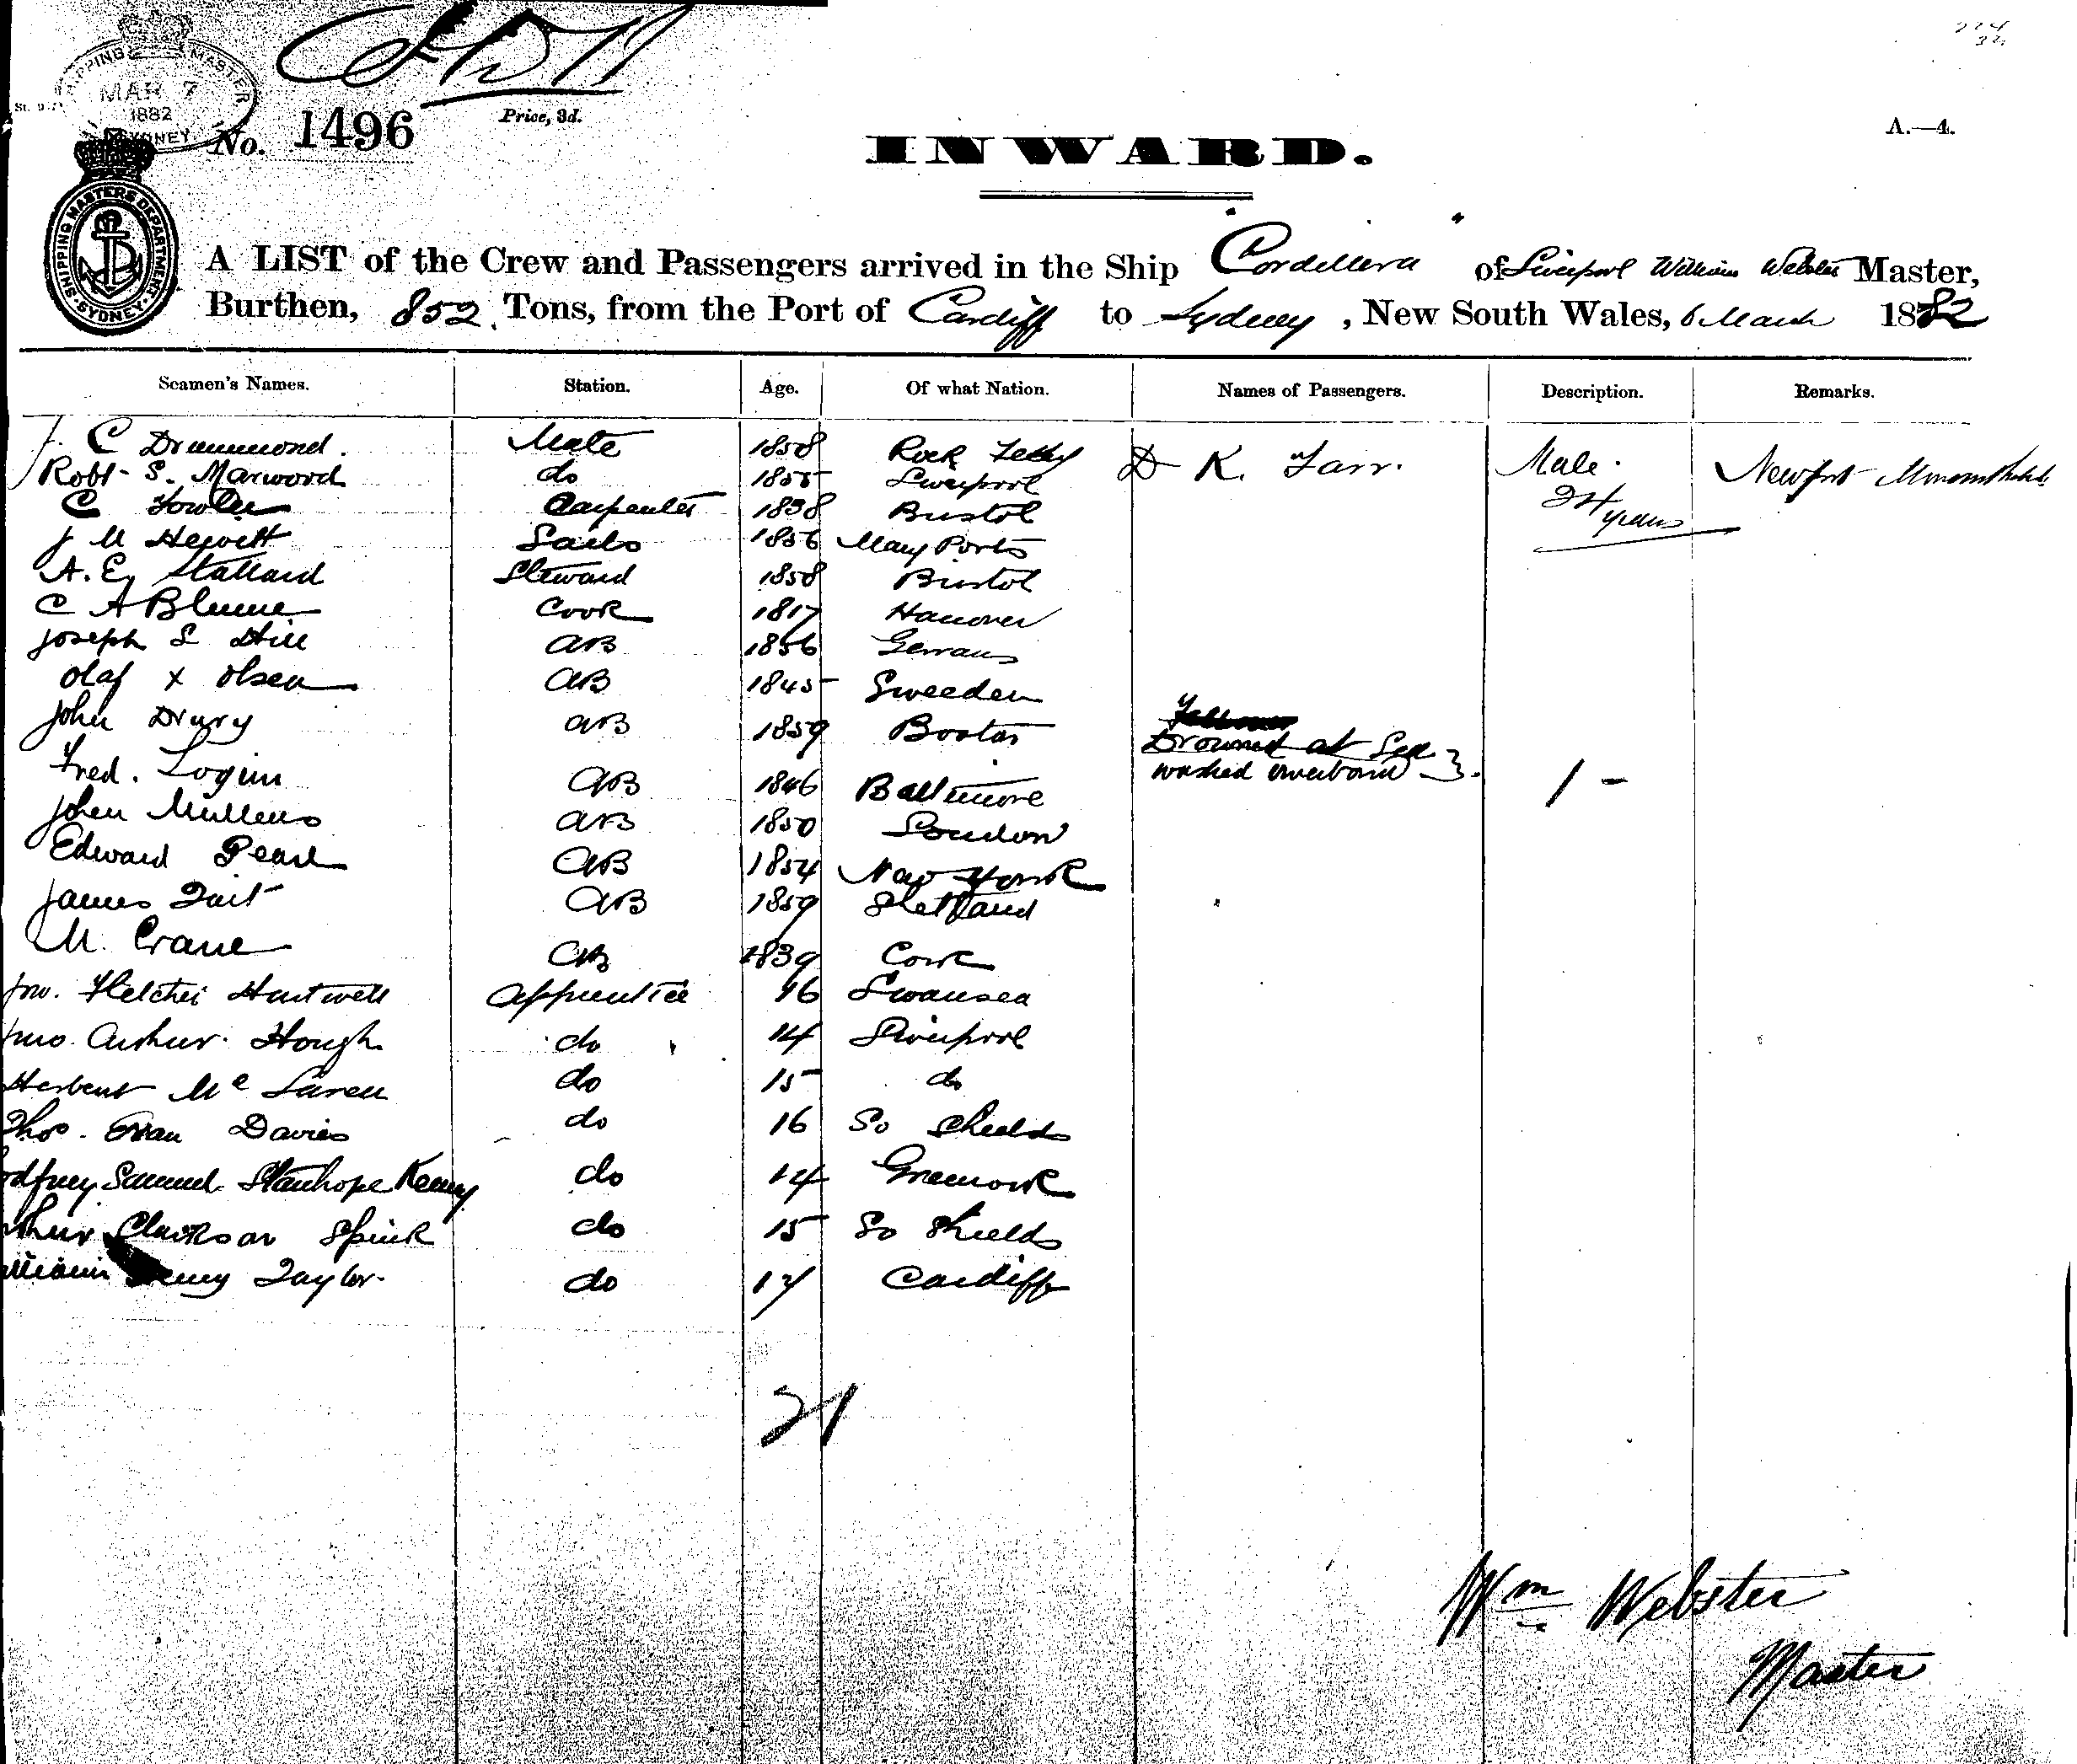 SHIPPING MASTER
MAR 7
1882
SYDNEY
No. 1496
Price, 3d.
INWARD.
A.—4.
SHIPPING MASTERS DEPARTMENT SYDNEY
A LIST of the Crew and Passengers arrived in the Ship "Cordillera" of Liverpool William Webster Master,
Burthen, 852 Tons, from the Port of Cardiff to Sydney, New South Wales, 6 March 1882
Seamen's Names. Station. Age. Of what Nation. Names of Passengers. Description. Remarks.
C Drummond. Mate 1858 Rock Ferry D K. Tarr. Male. Newport
Robt S. Marwood do 1855 Liverpool 24 years
C Fowler Carpenter 1838 Bristol
J M Hewitt Sails 1856 Mary Ports
A. E. Stallard Steward 1858 Bristol
C A Blume Cook 1817 Hanover
Joseph S Hill AB 1856 Gerrans
Olaf x Olsen AB 1845 Sweeden
John Drury AB 1859 Boston Drowned at Sea
washed overboard } 1 -
Fred. Logim AB 1846 Baltimore
John Mullens AB 1850 London
Edward Pearl AB 1854 New York
James Tait AB 1859 Shetland
M. Crane AB 1839 Cork
Jno. Fletcher Hartwell Apprentice 16 Swansea
Jno. Arthur Hough do 14 Liverpool
Herbert Mc Laren do 15 do
Thos. Evan Davies do 16 So Shields
odfrey Samuel Stanhope Kenny do 14 Greenock
thur Clarkson Spink do 15 So Shields
illiam Henry Taylor do 17 Cardiff
21
Wm Webster
Master